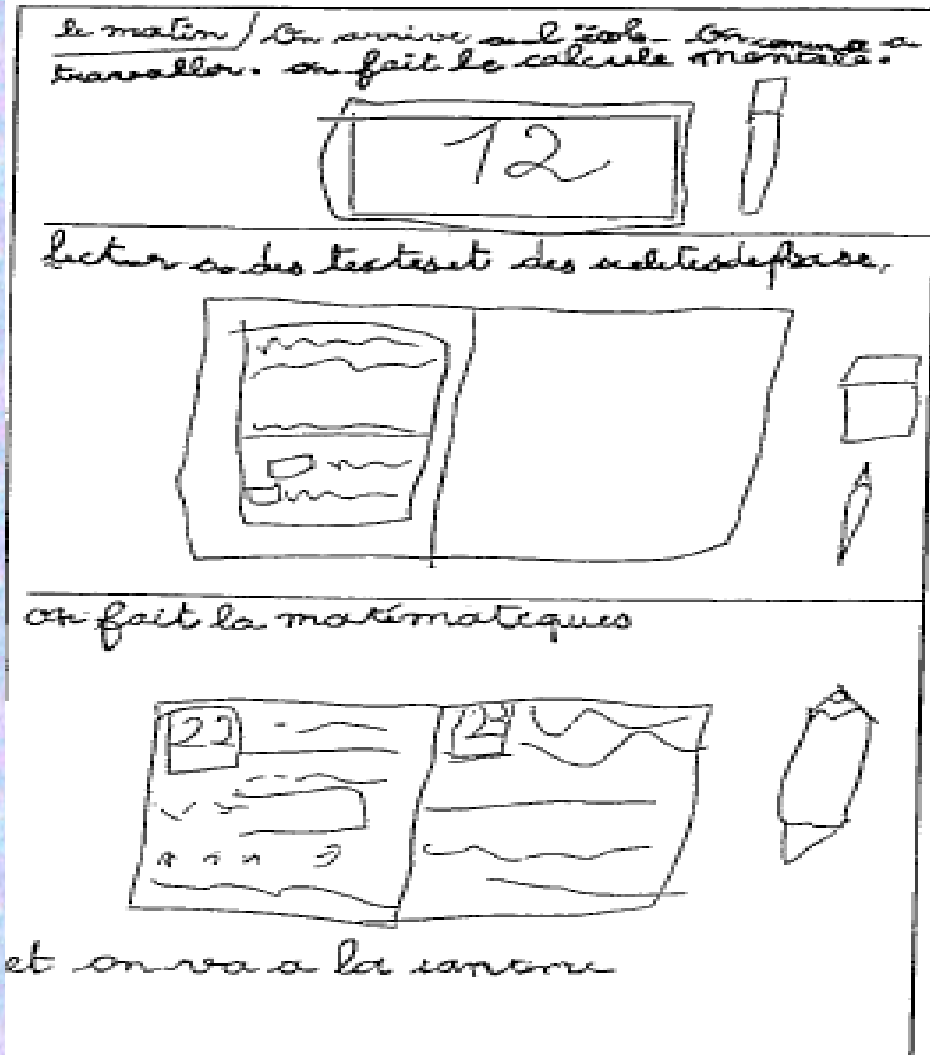 le matin / On arrive a l'école On commence a
travaller. on fait le calcule mentale.
12
on des textes et des de phrase.
on fait la matématiques
22
23
et on va a la